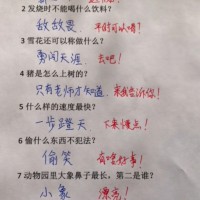 2 发烧时不能喝什么饮料?
敌敌畏 平时可以喝?
3 雪花还可以称做什么?
勇闯天涯 去吧!
4 猪是怎么上树的?
只有老师才知道. 来我告诉你!
5 什么样的速度最快?
一步蹬天 下来慢点!
6 偷什么东西不犯法?
偷笑 有啥好事!
7 动物园里大象鼻子最长，第二是谁?
小象 漂亮!